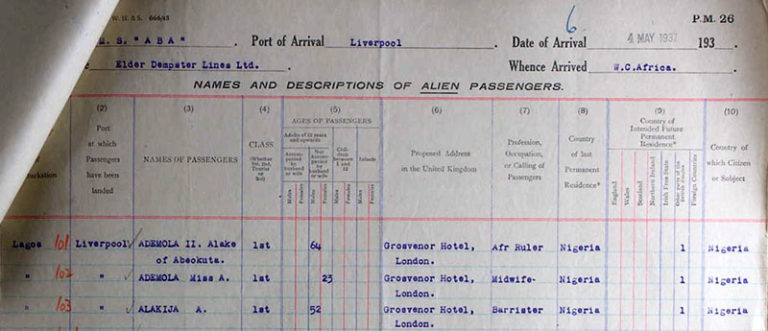 W. H. & S. 666/43
P.M. 26
6
M.S. "ABA" . Port of Arrival Liverpool . Date of Arrival 4 MAY 1937 193 .
Elder Dempster Lines Ltd. . Whence Arrived W.C.Africa.
NAMES AND DESCRIPTIONS OF ALIEN PASSENGERS.
(2) (3) (4) (5) (6) (7) (8) (9) (10)
Port at which Passengers have been landed
NAMES OF PASSENGERS
CLASS (Whether 1st, 2nd, Tourist or 3rd)
AGES OF PASSENGERS
Adults of 12 years and upwards
Accompanied by husband or wife
Not Accompanied by husband or wife
Children between 1 and 12
Infants
Males Females Males Females Males Females Males Females
Proposed Address in the United Kingdom
Profession, Occupation, or Calling of Passengers
Country of last Permanent Residence*
Country of Intended Future Permanent Residence*
England Wales Scotland Northern Ireland Irish Free State Other parts of the British Empire Foreign Countries
Country of which Citizen or Subject
Lagos 101 Liverpool ADEMOLA II. Alake 1st 64 Grosvenor Hotel, Afr Ruler Nigeria 1 Nigeria
of Abeokuta. London.
" 102 " ADEMOLA Miss A. 1st 23 Grosvenor Hotel, Midwife- Nigeria 1 Nigeria
London.
" 103 " ALAKIJA A. 1st 52 Grosvenor Hotel, Barrister Nigeria 1 Nigeria
London.